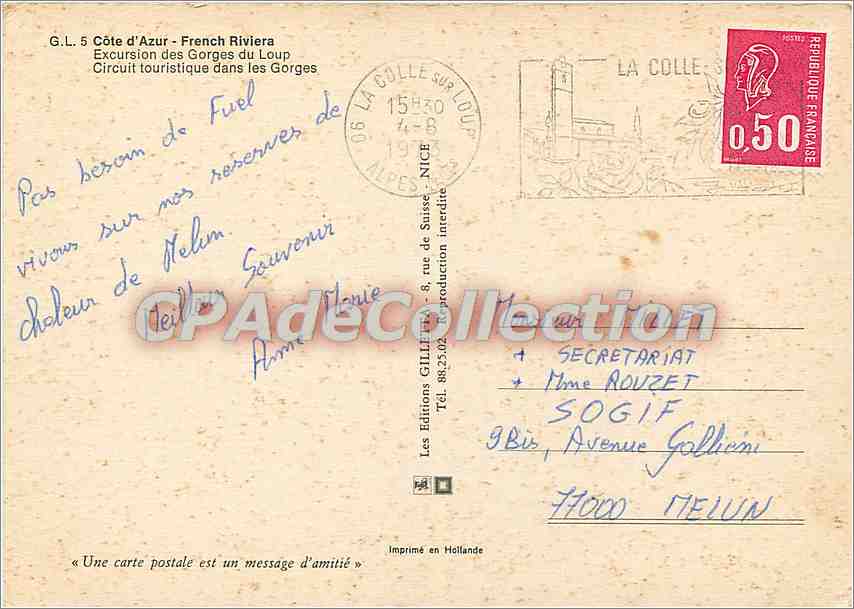 G.L. 5 Côte d'Azur - French Riviera
Excursion des Gorges du Loup
Circuit touristique dans les Gorges
Pas besoin de Fuel
vivons sur nos reserves de
chaleur de Melun.
Meilleur Souvenir
Anne Marie
06 LA COLLE SUR LOUP
15H30
4-6
ALPES
LA COLLE-S
POSTES
REPUBLIQUE FRANÇAISE
0,50
Les Editions GILLETTA - 8, rue de Suisse, NICE
Tél. 88.25.02. Reproduction interdite
CPAdeCollection
Monsieur
+ SECRETARIAT
+ Mme ROUZET
SOGIF
9Bis, Avenue Gallieni
77000 MELUN
Imprimé en Hollande
« Une carte postale est un message d'amitié »